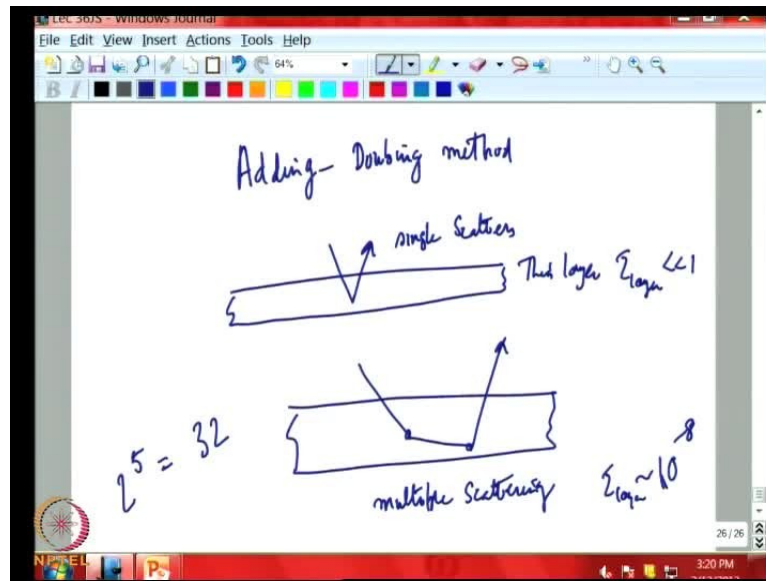 Lec 36JS - Windows Journal
File Edit View Insert Actions Tools Help
64%
B I
Adding - Doubing method
single Scatters
Thin layer τlayer <<1
2^5 = 32
multiple Scattering τlayer ~ 10^-8
26 / 26
NPTEL
3:20 PM